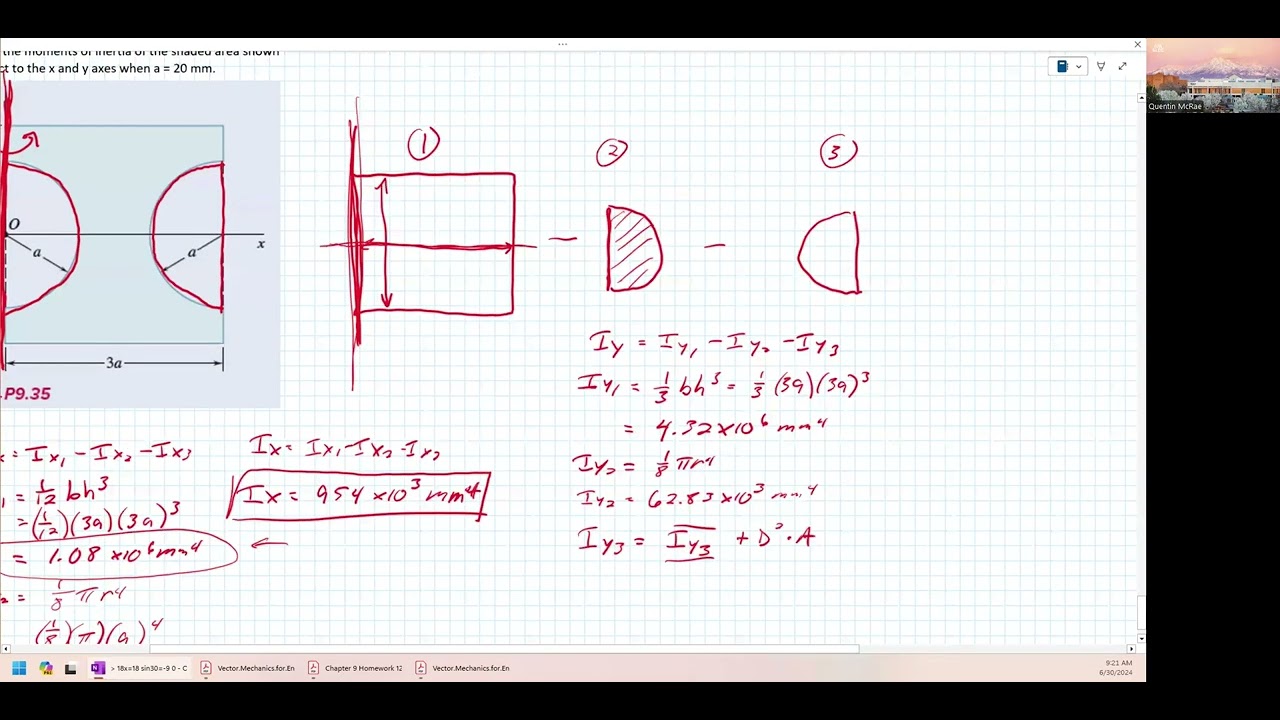 the moments of inertia of the shaded area shown
ct to the x and y axes when a = 20 mm.
Quentin McRae
O
a
a
x
3a
P9.35
①
②
③
−
−
Iy = Iy₁ − Iy₂ − Iy₃
Iy₁ = 1/3 bh³ = 1/3 (3a)(3a)³
= 4.32 x10⁶ mm⁴
Iy₂ = 1/8 πr⁴
Iy₂ = 62.83 x10³ mm⁴
Iy₃ = I̅y₃ + D²·A
x = Ix₁ − Ix₂ − Ix₃
1 = 1/12 bh³
= (1/12)(3a)(3a)³
= 1.08 x10⁶ mm⁴
2 = 1/8 πr⁴
(1/8)(π)(a)⁴
Ix = Ix₁ − Ix₂ − Ix₂
Ix = 954 x10³ mm⁴
> 18x=18 sin30=-9 0 - C
Vector.Mechanics.for.En
Chapter 9 Homework 12
Vector.Mechanics.for.En
9:21 AM
6/30/2024